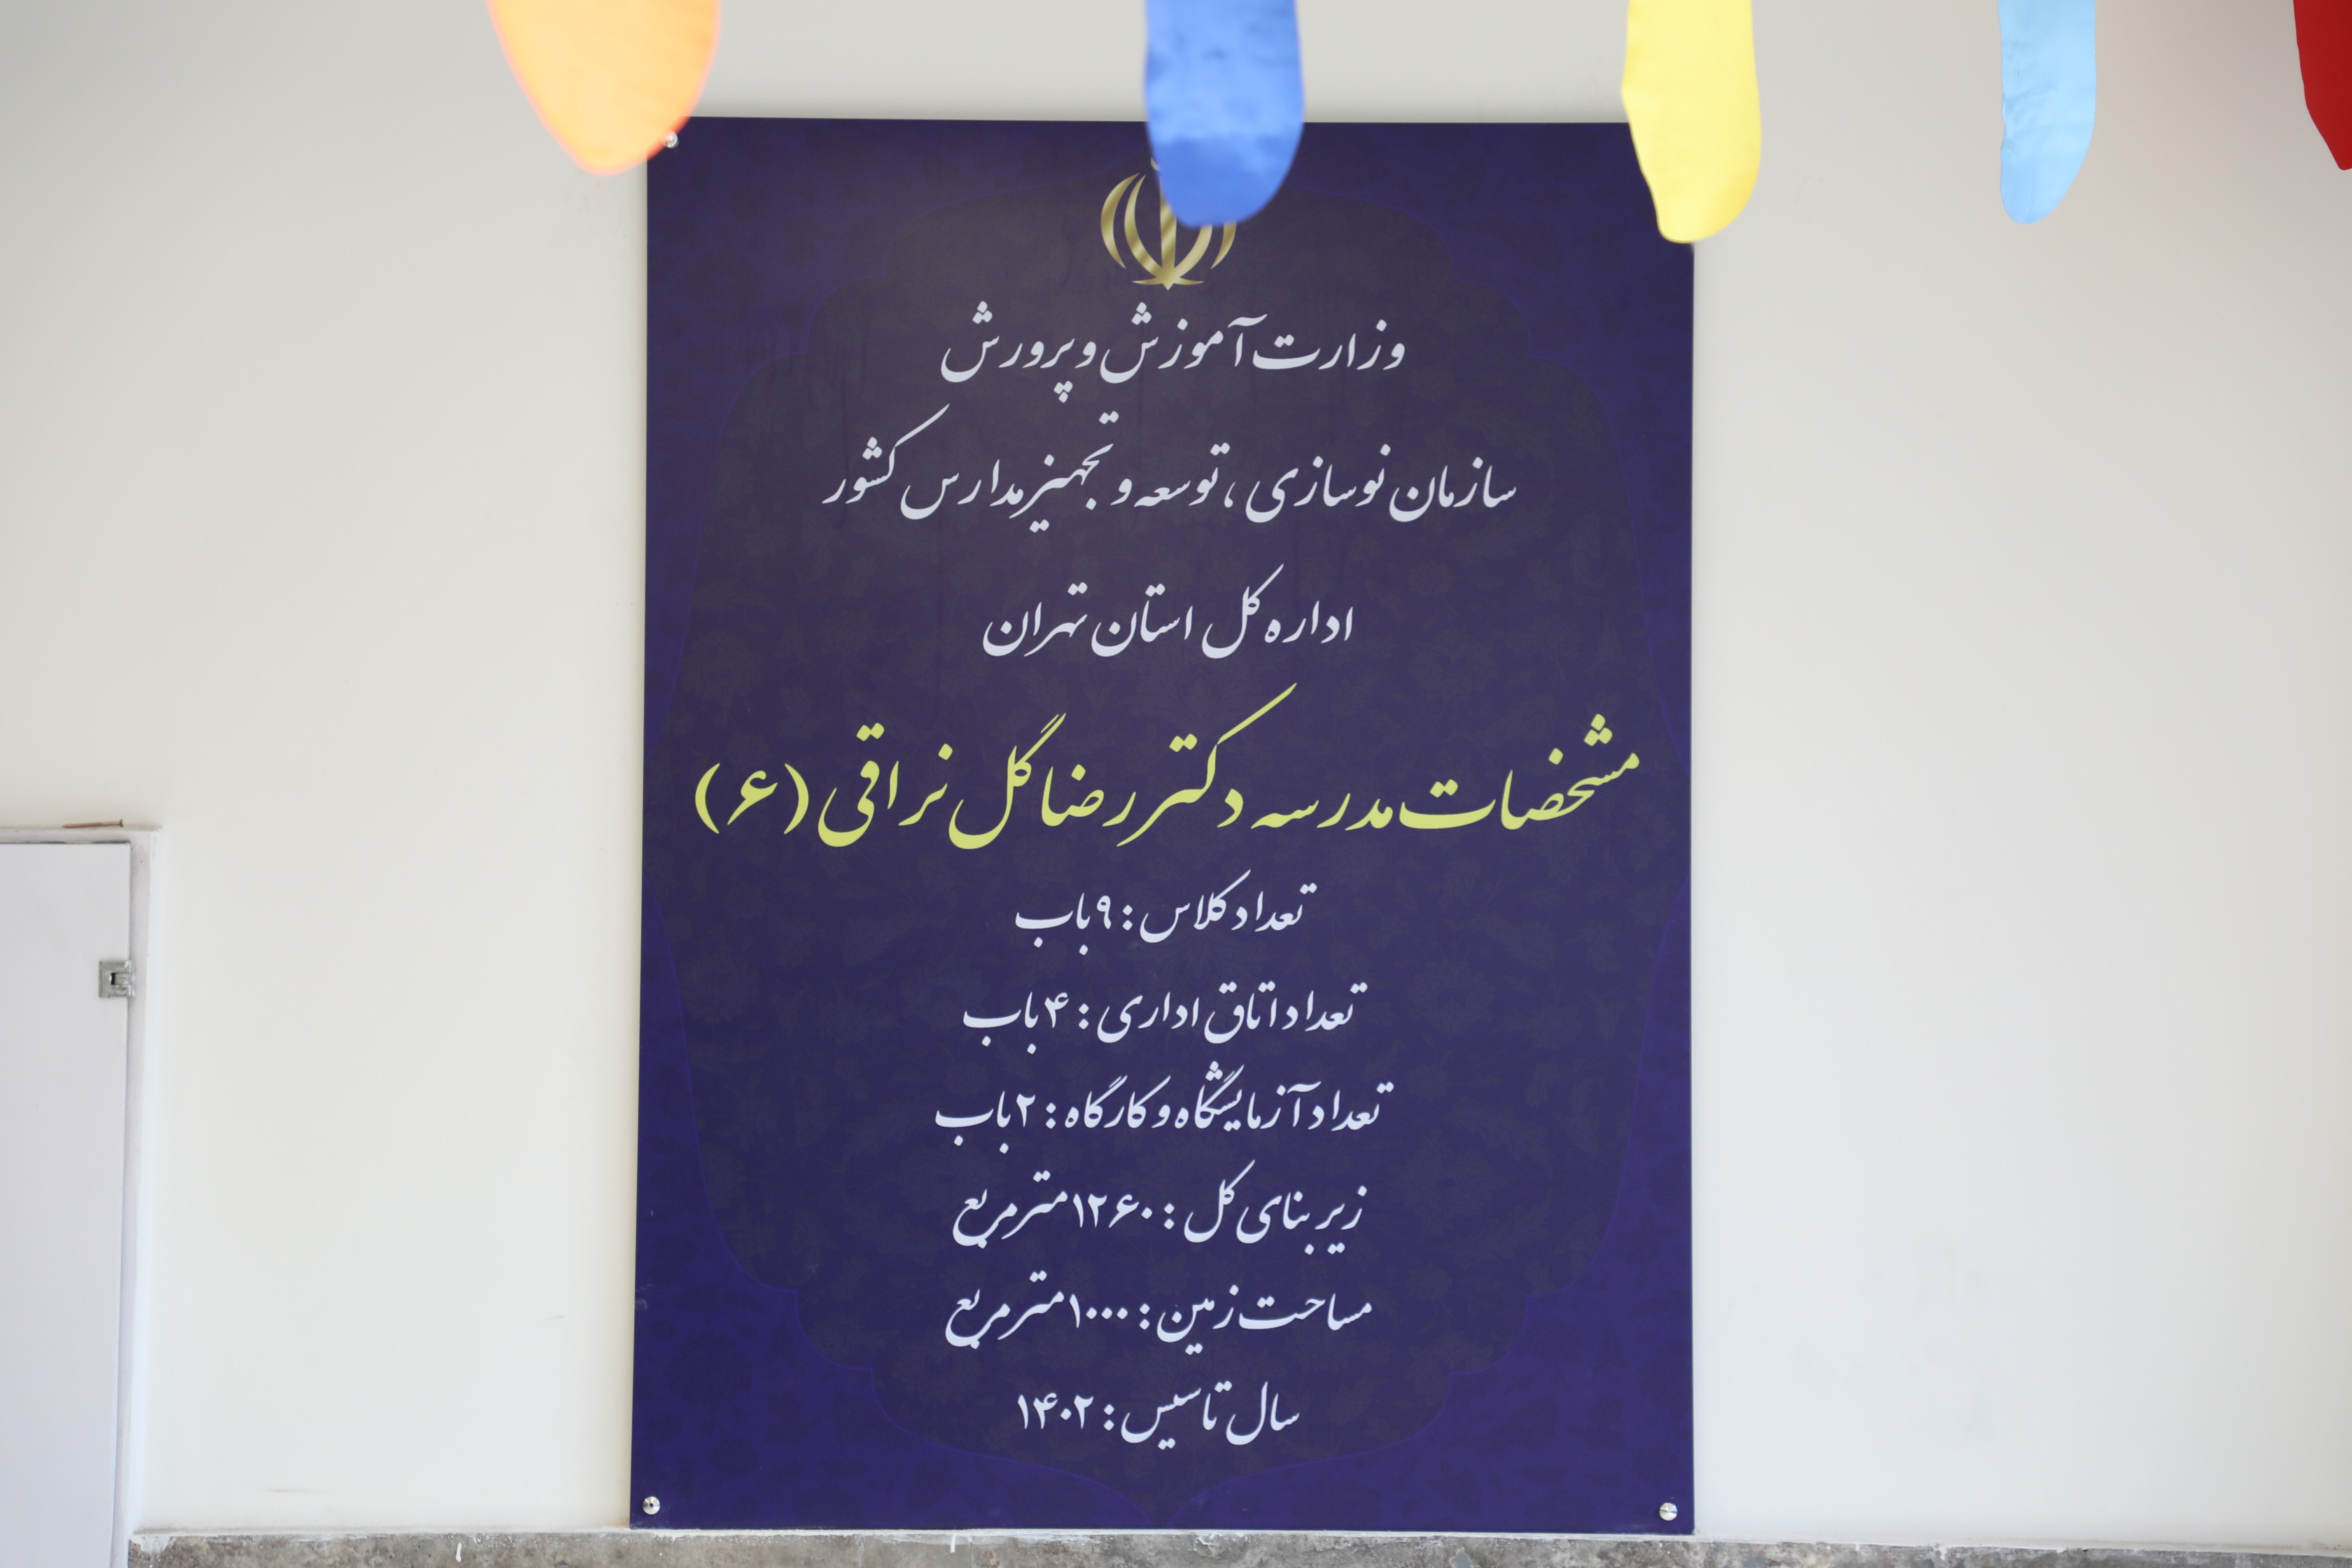 وزارت آموزش و پرورش
سازمان نوسازی ، توسعه و تجهیز مدارس کشور
اداره کل استان تهران
مشخصات مدرسه دکتر رضا گل نراقی (۶)
تعداد کلاس : ۹ باب
تعداد اتاق اداری : ۴ باب
تعداد آزمایشگاه و کارگاه : ۲ باب
زیر بنای کل : ۱۲۶۰ متر مربع
مساحت زمین : ۱۰۰۰ متر مربع
سال تاسیس : ۱۴۰۲